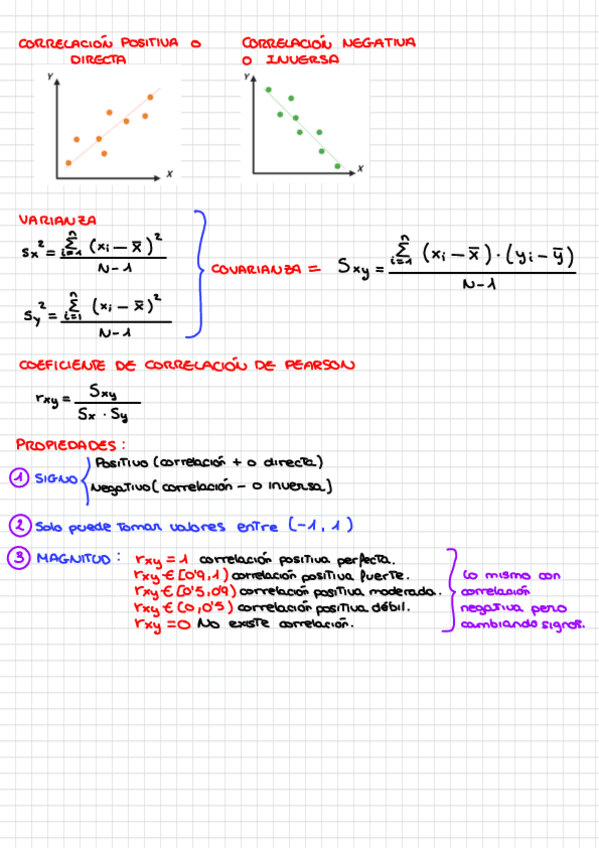 CORRELACIÓN POSITIVA O
DIRECTA
CORRELACIÓN NEGATIVA
O INVERSA
Y
X
Y
X
VARIANZA
Sx² = n Σ i=1 (xi − x̄)² / N-1
Sy² = n Σ i=1 (xi − x̄)² / N-1
COVARIANZA = Sxy = n Σ i=1 (xi − x̄) · (yi − ȳ) / N-1
COEFICIENTE DE CORRELACIÓN DE PEARSON
rxy = Sxy / Sx · Sy
PROPIEDADES:
1 SIGNO
Positivo (correlación + o directa)
Negativo (correlación − o inversa)
2 Solo puede tomar valores entre (-1, 1)
3 MAGNITUD: rxy = 1 correlación positiva perfecta.
rxy ∈ [0'9, 1) correlación positiva fuerte.
rxy ∈ [0'5, 0'9) correlación positiva moderada.
rxy ∈ (0, 0'5) correlación positiva débil.
rxy = 0 No existe correlación.
Lo mismo con
correlación
negativa pero
cambiando signos.